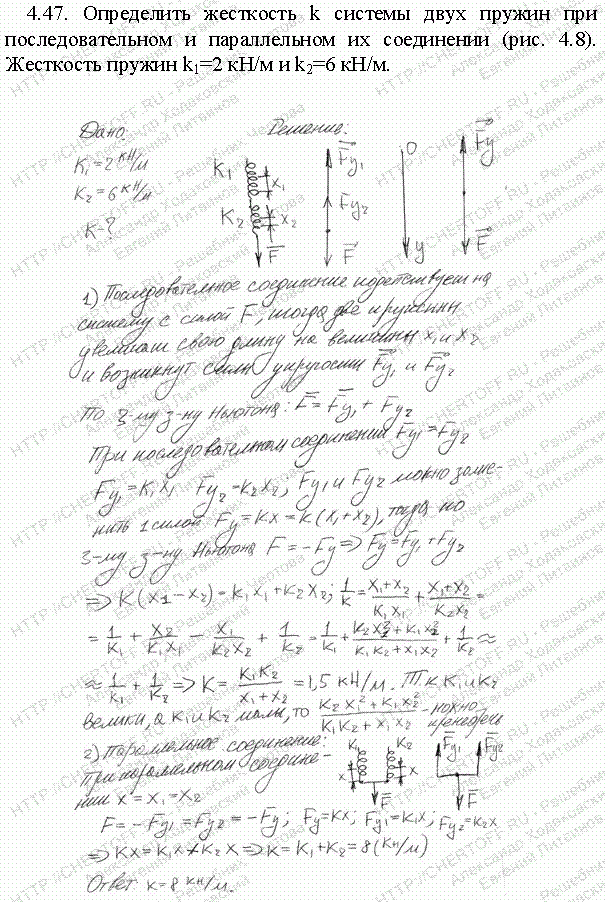 4.47. Определить жесткость k системы двух пружин при
последовательном и параллельном их соединении (рис. 4.8).
Жесткость пружин k₁=2 кН/м и k₂=6 кН/м.
Дано: Решение:
K₁ = 2 кН/м
K₂ = 6 кН/м
K-?
K₁ x₁ K₂ x₂ F
Fy₁ Fy₂ F
O y
Fy F
1) Последовательное соединение подействуем на
систему с силой F, тогда две пружины
увеличат свою длину на величины x₁ и x₂
и возникнут силы упругости Fy₁ и Fy₂
По 3-му з-ну Ньютона: F = Fy₁ + Fy₂
При последовательном соединении Fy₁ = Fy₂
Fy₁ = K₁x₁ Fy₂ = K₂x₂, Fy₁ и Fy₂ можно заме-
нить 1 силой Fy = Kx = K(x₁+x₂), тогда по
3-му з-ну Ньютона F = -Fy => Fy = Fy₁ + Fy₂
=> K(x1 - x₂) = K₁x₁ + K₂x₂; 1/K = (x₁+x₂)/(K₁x₁) + (x₁+x₂)/(K₂x₂) =
= 1/K₁ + x₂/(K₁x₁) - x₁/(K₂x₂) + 1/K₂ = 1/K₁ + (K₂x₂² + K₁x₁²)/(K₁K₂+x₁x₂) + 1/K₂ ≈
≈ 1/K₁ + 1/K₂ => K = K₁K₂/(x₁+x₂) = 1,5 кН/м. Т.к K₁ и K₂
велики, а K₁ и K₂ малы, то (K₂x² + K₁x₁²)/(K₁K₂+x₁x₂) - можно
пренебречь
2) Параллельное соединение:
При параллельном соедине-
нии x = x₁ = x₂
K₁ K₂ x x F
Fy₁ Fy₂ F
F = -Fy₁ = Fy₂ = -Fy; Fy = Kx; Fy₁ = K₁x; Fy₂ = K₂x
=> Kx = K₁x + K₂x => K = K₁ + K₂ = 8 (кН/м)
Ответ: K = 8 кН/м.
HTTP://CHERTOFF.RU - Решебник Чертова
Александр Ходаковский
Евгений Литвинов